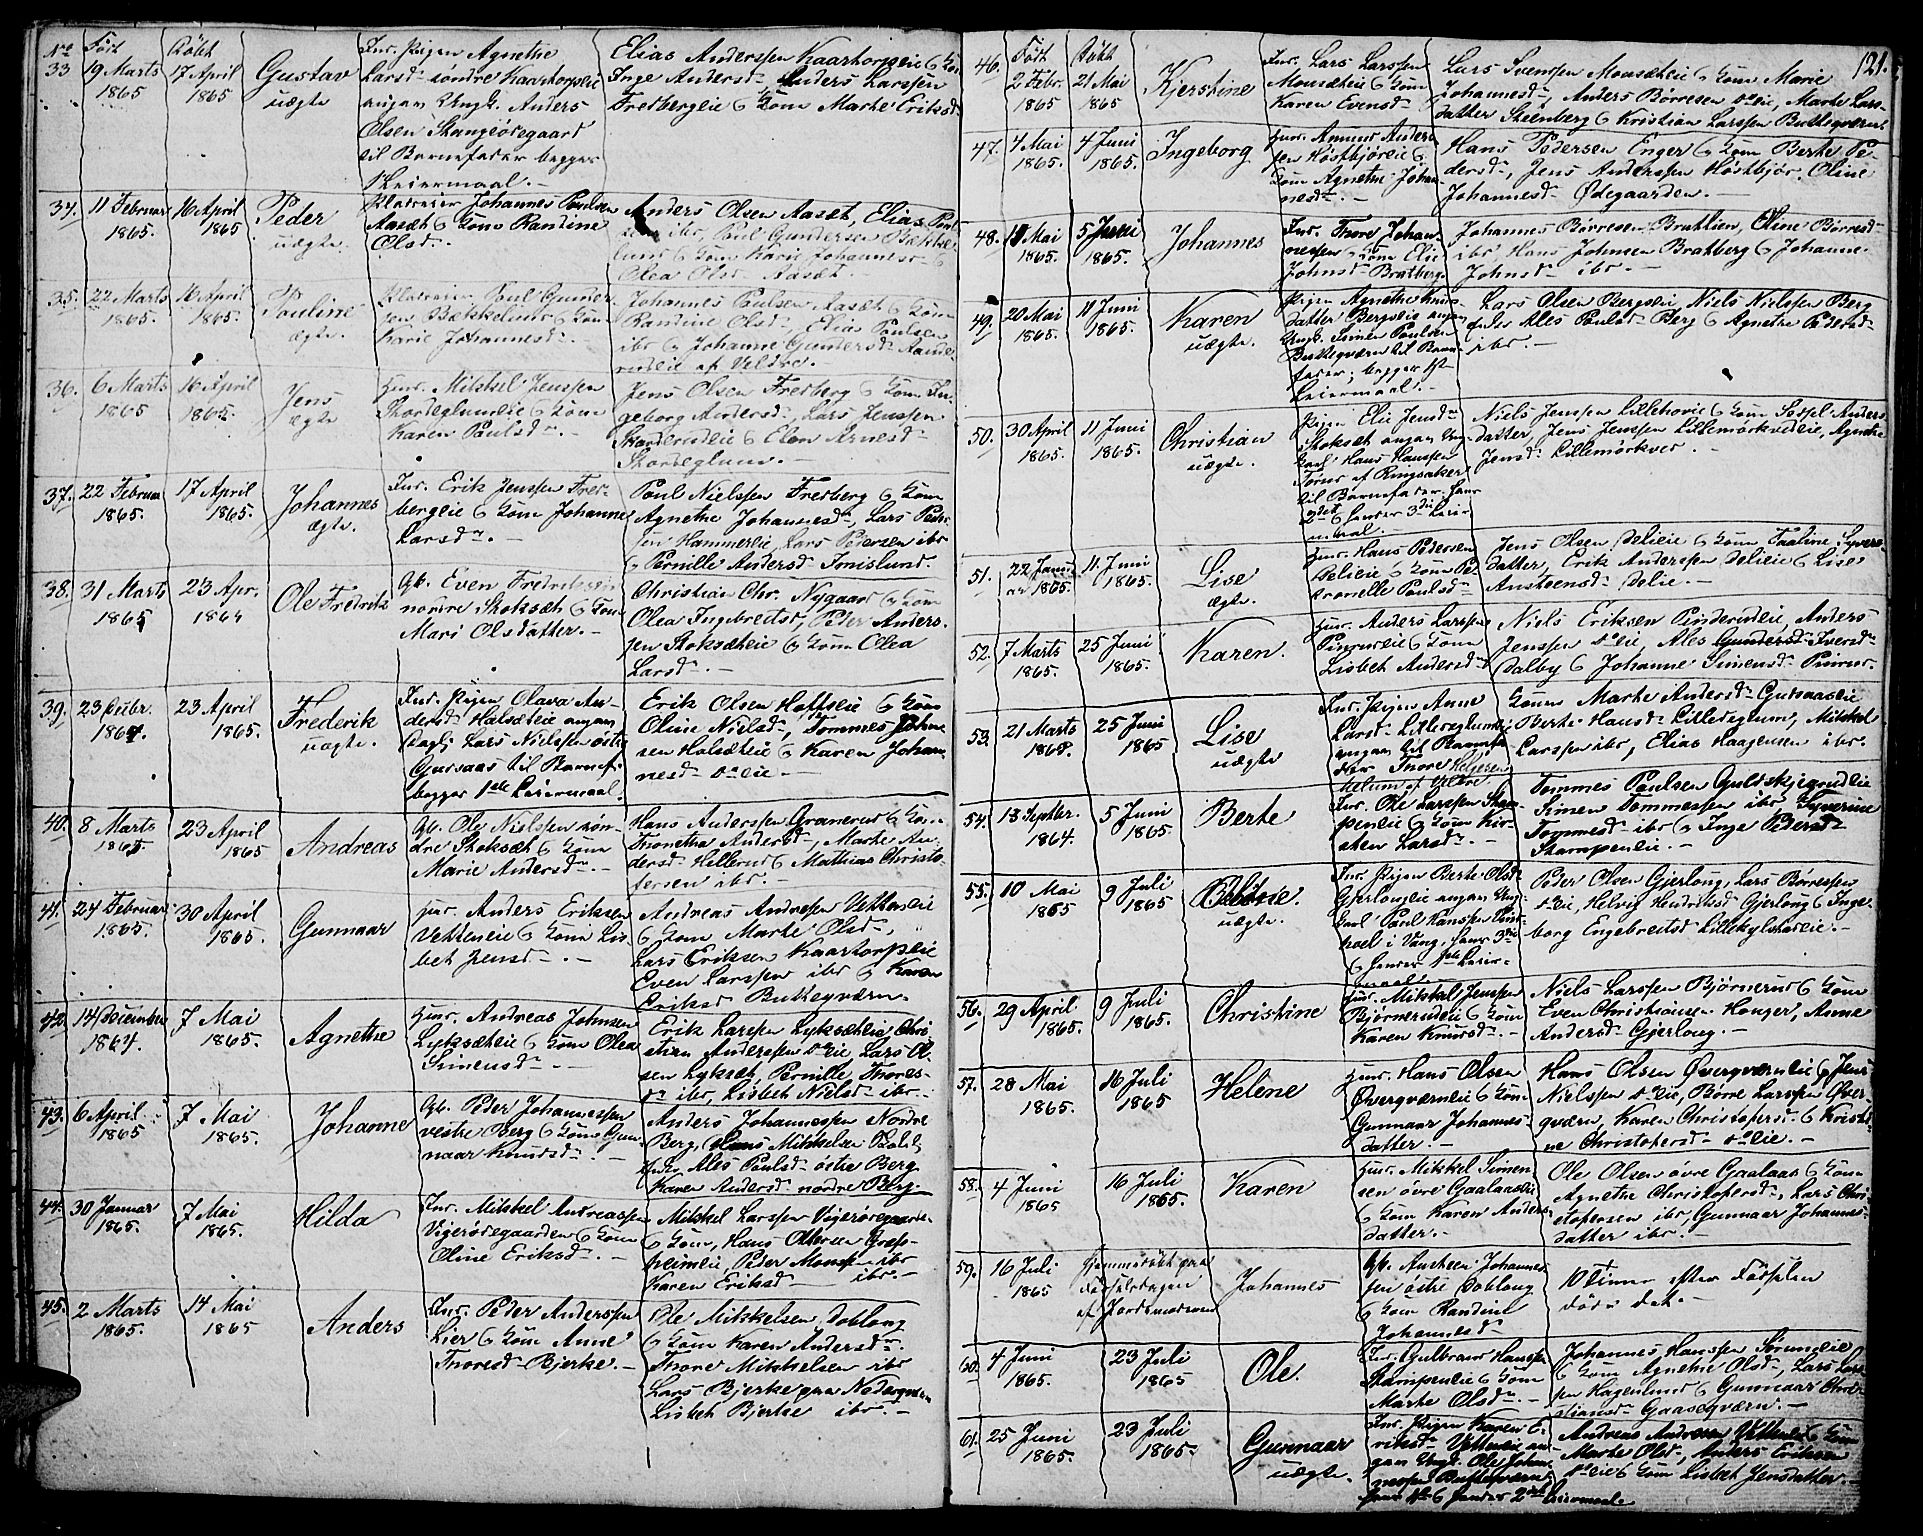 No Født Døbt
33 19 Marts 1865 17 April 1865 Gustav uægte
Ins. Pigen Agnethe
Larsd. søndre Kaartorpeie
angav Ungk. Anders
Olsen Stangsødegaard
til Barnefader begges
Leiermaal. -
Elias Anderssen Kaartorpeie & Kone
Inge Andersd., Anders Larssen
Fredbergeie & Kone Marte Eriksd.
34. 11 Februar 1865. 16 April 1865 Peder uægte.
Johannes Poulsen
Aasæt & Kone Randine
Olsd.
Anders Olsen Aasæt, Elias Poul-
sen ibr, Poul Gundersen Bække-
lund & Kone Karie Johannesd. &
Olea Olsd. Aasæt. -
35. 22 Marts 1865. 16 April 1865. Pouline ægte.
Poul Gunder-
sen Bækkelund & Kone
Karie Johannesd.
Johannes Poulsen Aasæt & Kone
Randine Olsd., Elias Poulsen
ibr & Johanne Gundersd.
af Veldre.
36. 6 Marts 1865 16 April 1865. Jens ægte
Huus. Mikkel Jenssen
Skordeglumeie & Kone
Karen Poulsd. -
Jens Olsen Fredberg & Kone In-
geborg Andersd., Lars Jenssen
& Elen Arnesd.
Skordeglum. -
37. 22 Februar 1865. 17 April 1865. Johannes ægte.
Ins. Erik Jenssen Fred-
bergeie & Kone Johanne
Larsd. -
Poul Nielssen Fredberg & Kone
Agnethe Johannesd., Lars Peder-
sen Hammereie, Lars Pedersen ibr
& Pernille Andersd. Imislund.
38. 31 Marts 1865 23 Apr. 1865 Ole Fredrik
Gb. Even Fredriksen
nordre Stoksæt & Kone
Mari Olsdatter. -
Christian Chr. Nygaard & Kone
Olea Ingebretsd., Peder Anders-
sen Stoksæteie & Kone Olea
Larsd. -
39. 23 Octbr. 1864. 23 April 1865. Frederik uægte.
Ins. Pigen Olava An-
dersd. Halsæteie angav
Lars Nielssen østre
Gursaas til Barnef.
begges 1ste Leiermaal.
Erik Olsen Hoffseie & Kone
Oline Nielsd., Tommes Johne-
sen Halsæteie & Karen Johan-
nesd. do eie. -
40. 8 Marts 1865 23 April 1865 Andreas
Gb. Ole Nielssen søn-
dre Stoksæt & Kone
Marie Andersd. -
Hans Anderssen Granerud & Kone
Thonethe Andersd., Marte An-
dersd. Hellerud & Mathias Christo-
fersen ibr.
41. 24 Februar 1865. 30 April 1865. Gunnaar
Huus. Anders Eriksen
Vetteneie & Kone Lis-
bet Jensd. -
Andreas Andressen Vetteneie
& Kone Marte Olsd.,
Lars Eriksen Kaartorpeie
Even Larssen ibr & Karen
Eriksd. Buttegværn.
42. 14 December 1864. 7 Mai 1865. Agnethe
Huus. Andreas Johnsen
Lyksæteie & Kone Olea
Simensd. -
Erik Larssen Lyksæteie Chri-
stian Anderssen do eie, Lars Ol-
sen Lyksæt, Pernille Thores-
d. ibr, Lisbet Nielsd. ibr.
43. 6 April 1865 7 Mai 1865. Johanne
Gb. Peder Johannessen
vestre Berg & Kone Gun-
naar Knudsd. -
Anders Johannessen Nordre
Berg, Hans Mikkelsen
Ales Poulsd. østre Berg
Karen Andersd. nordre Berg
44. 30 Januar 1865. 7 Mai 1865. Hilda
Ins. Mikkel Andreassen
Vigerødegaarden & Kone
Oline Eriksd. -
Mikkel Larssen Vigerødegaarde-
& Kone, Hans Græs-
heimeie, Peder ibr
Karen Eriksd. ibr. -
45. 2 Marts 1865. 14 Mai 1865 Anders
Ins. Peder Anderssen
Lier & Kone Anne
Thoresd. Bjerke. -
Ole Mikkelsen Doblong
& Kone Karen Andersd.
Thore Mikkelsen ibr
Lars Bjerke paa Nedergværn
Lisbet Bjerke ibr. -
121.
46. Født 2 Febr. 1865 Døbt 21 Mai 1865 Kjerstine
Ins. Lars Larssen
Mousæteie & Kone
Karen Evensd.
Lars Svenssen Mousæteie & Kone Marie
Johannesd., Anders Børresen do eie, Marte Lars-
datter Steenberg & Kristian Larssen Buttegværn.
47. 4 Mai 1865. 4 Juni 1865. Ingeborg
Huus. Amund Ander-
sen Høstbjøreie &
Kone Agnethe Johan-
nesd. -
Hans Pedersen Enger & Kone Berte Pe-
dersd., Jens Anderssen Høstbjør, Oline
Johannesd. Ødegaarden. -
48. 18 Mai 1865. 5 Juni 1865. Johannes
Ins. Thore Johan-
nessen & Kone Elie
Johnsd. Bratberg.
Johannes Børresen Bratlien, Oline Børresd.
ibr, Hans Johnsen Bratberg & Johanne
Johnsd. ibr. -
49. 20 Mai 1865. 11 Juni 1865. Karen uægte.
Pigen Agnethe Knuds-
datter Bergseie angav
Ungk. Simen Poulsen
Buttegværn til Barne-
fader; begges 1ste
Leiermaal. -
Lars Olsen Bergseie, Niels Nielssen Berg
Ales Poulsd. Berg & Agnethe Pedersd.
ibr. -
50. 30 April 1865. 11 Juni 1865. Christian uægte.
Pigen Elie Jensd.
Stoksæt angav Ung-
karl Hans Hanssen
af Ringsaker
til Barnefader, hans
2det & hendes 3die Leier-
maal
Niels Jenssen Lillehovie & Kone Sissel Anders-
datter, Jens Jenssen Lillemørkvedeie, Agnethe
Jensd. Lillemørkved. -
51. 22 Janu-ar 1865. 11 Juni 1865. Lise ægte.
Huus. Hans Pedersen
Delieie & Kone Pe-
tronelle Poulsd.
Jens Olsen Delieie & Kone Pauline Syvers-
datter, Erik Anderssen Delieie & Lise
Austensd. Delie. -
52. 7 Marts 1865. 25 Juni 1865. Karen.
Huus. Anders Larssen
& Kone
Lisbet Andersd.
Niels Eriksen Pinderudeie, Anders
Jenssen do eie, Ales Gundersd. Iversd.
Dalby & Johanne Simensd.
53. 21 Marts 1865. 25 Juni 1865 Lise uægte
Ins. Pigen Anne
Larsd. Lilleseglumeie
angav til Barnefa-
der Thore Helgesen
af Veldre
Konen Marte Andersd. Gursaaseie
Berte Hansd. Lilleseglum, Mikkel
Larssen ibr, Elias Haagensen ibr.
54. 13 Septbr. 1864. 5 Juni 1865. Berte
Ins. Ole Larssen Skam-
peneie & Kone Kir-
sten Larsd. -
Tommes Poulsen Guldskjegrudeie
Simen Tommessen ibr Syverine
Tommesd. ibr & Inge Pedersd.
Skampeneie. -
55. 10 Mai 1865 9 Juli 1865 uægte.
Ins. Pigen Berte Olsd.
Gjerlougeie angav Ung-
karl Poul Hanssen
i Vang, hans 3die
& hendes 1ste Leier-
maal
Peder Olsen Gjerloug, Lars Børressen
do eie, Helvig Hendriksd. Gjerloug & Inge-
borg Engebretsd. Lillekylstadeie. -
56. 29 April 1865. 9 Juli 1865. Christine
Huus. Mikkel Jenssen
Bjørnerudeie & Kone
Karen Knudsd. -
Niels Larssen Bjørnerud & Kone
Even Christiansen Honger, Anne
Andersd. Gjerloug. -
57. 28 Mai 1865. 16 Juli 1865 Helene
Huus. Hans Olsen
Øvergværneie & Kone
Gunnaar Johannes-
datter. -
Hans Olsen Øvergværneie & Jens
Nielssen do eie, Børre Larssen Øver-
gværn, Karen Christofersd. & Kristi-
ne Christofersd. do eie. -
58. 4 Juni 1865 16 Juli 1865. Karen
Huus. Mikkel Simen-
sen øvre Gaalaaseie
& Kone Karen Anders-
datter. -
Ole Olsen øvre Gaalaas & Kone
Agnethe Christofersd., Lars Chri-
stofersen ibr, Gunnaar Johannes-
datter ibr. -
59. 16 Juli 1865 Hjemmedøbt paa
Fødselsdagen
af Jordemoderen Johannes
Gb. Austeen Johannes-
sen østre Doblong
& Kone Randine
Johannesd.
10 Timer efter Fødselen
døde det. -
60. 4 Juni 1865. 23 Juli 1865 Ole.
Ins. Gulbrand Hanssen
Skampeneie & Kone
Marte Olsd. -
Johannes Hanssen Sørumeie
& Kone Agnethe Olsd., Lars Lars-
sen Hagenlund & Gunnaar Chri-
stiansd. Gaasegværn. -
61. 25 Juni 1865. 23 Juli 1865. Gunnaar uægte.
Ins. Pigen Karen E-
riksd. Vetteneie an-
gav Ungk. Ole Johan-
nessen Buttegværn,
hans & hendes 2det Leiermaale
Andreas Andresen Vetteneie & Kone
Marte Olsd., Anders Eriksen
do eie & Kone Lisbet Jensdatter. -